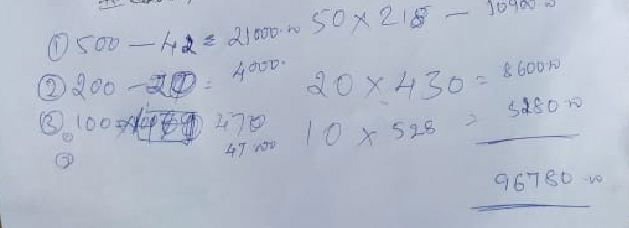 ① 500 — 42 = 21000.00 50 × 218 — 10900.00
② 200 — 20 = 4000. 20 × 430 = 8600.00
③ 100 × 470 10 × 528 = 5280.00
47000
96780.00